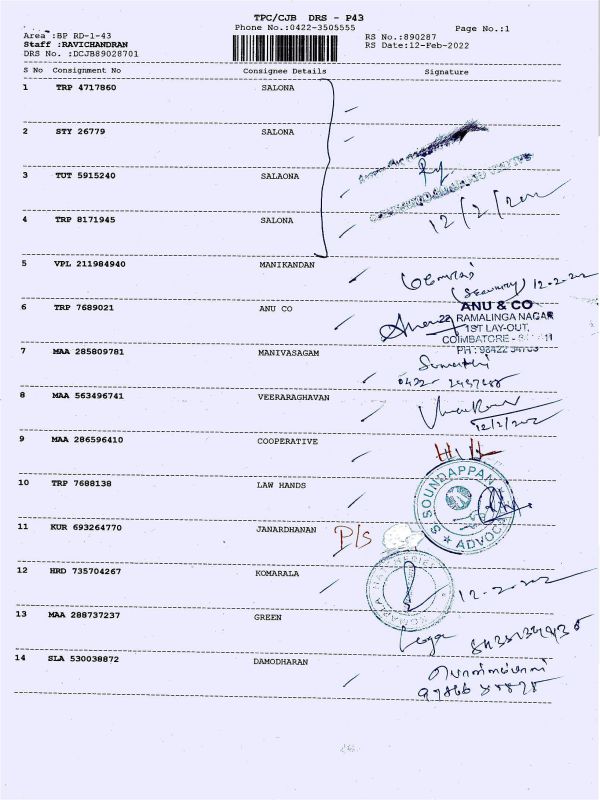 TPC/CJB DRS - P43
Phone No.:0422-3505555
Page No.:1
Area :BP RD-1-43
RS No.:890287
Staff :RAVICHANDRAN
RS Date:12-Feb-2022
DRS No. :DCJB89028701
S No Consignment No Consignee Details Signature
1 TRP 4717860 SALONA
2 STY 26779 SALONA
3 TUT 5915240 SALAONA
12/2/202
4 TRP 8171945 SALONA
5 VPL 211984940 MANIKANDAN
(Security) 12-2-202
6 TRP 7689021 ANU CO
ANU & CO
22 RAMALINGA NAGAR
1ST LAY-OUT,
COIMBATORE -
7 MAA 285809781 MANIVASAGAM
Sumathi
8 MAA 563496741 VEERARAGHAVAN
12/2/202
9 MAA 286596410 COOPERATIVE
10 TRP 7688138 LAW HANDS
S SOUNDAPPAN
ADVOC
11 KUR 693264770 JANARDHANAN P/S
12 HRD 735704267 KOMARALA
12-2-202
13 MAA 288737237 GREEN
14 SLA 530038872 DAMODHARAN